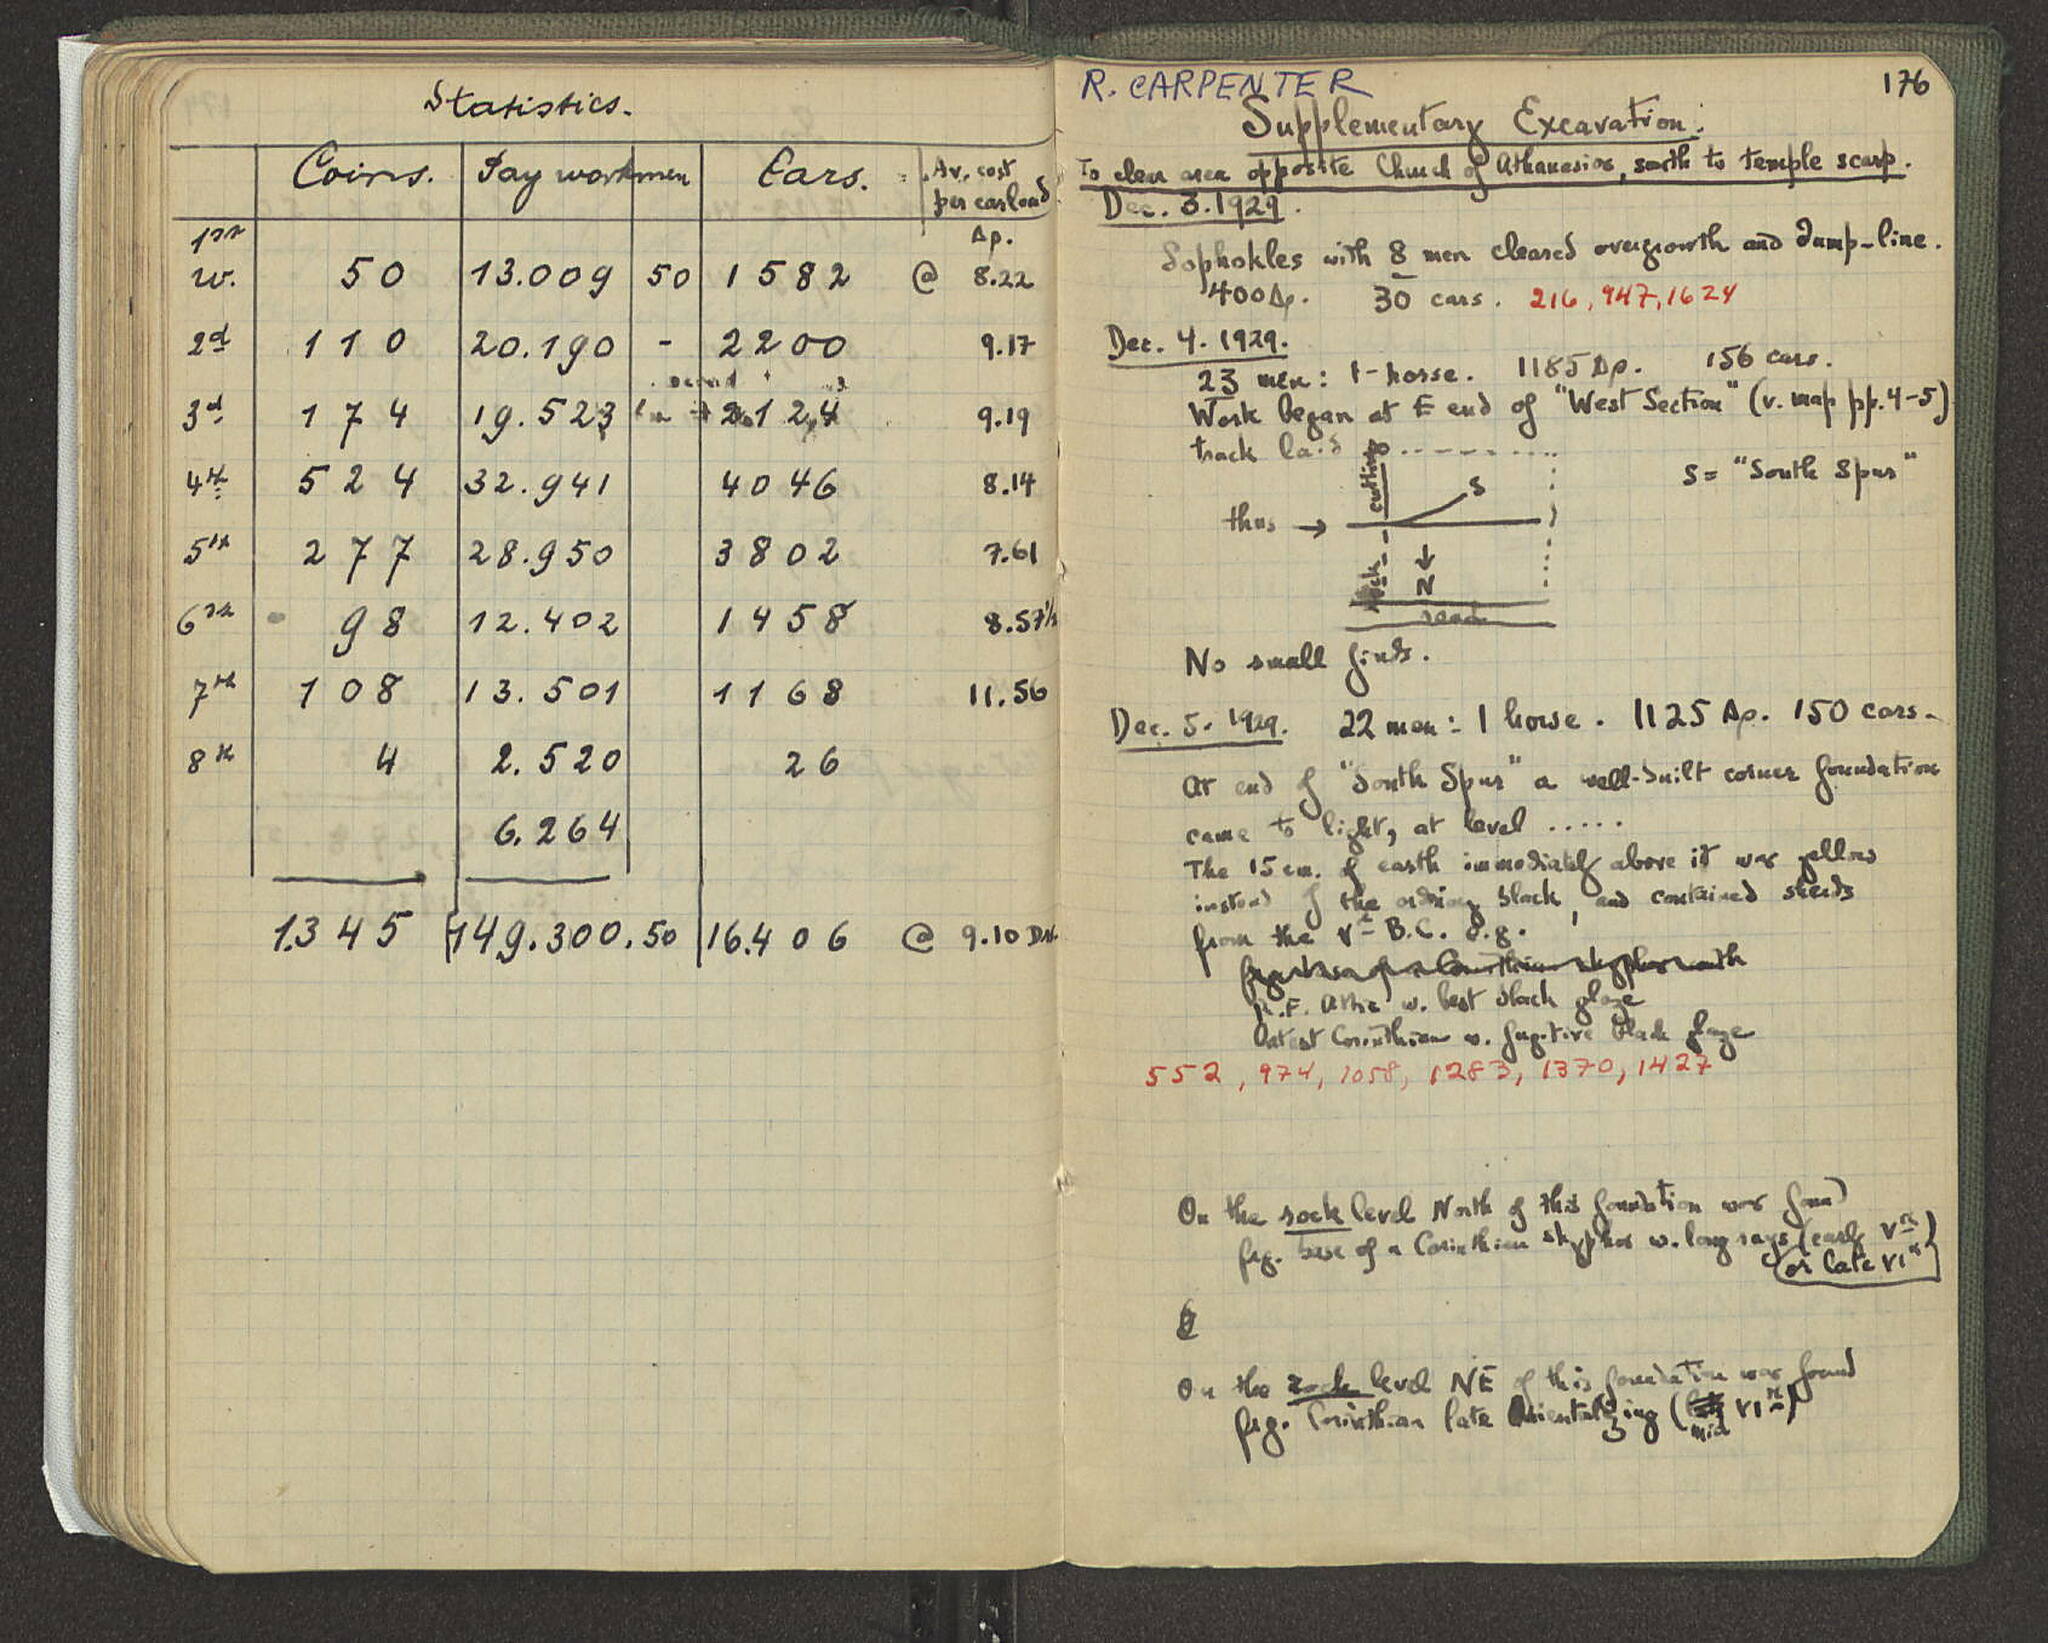 Statistics.
Coins. Pay workmen Cars. Av. cost per carload
Δρ.
1st w. 50 13.009 50 1582 @ 8.22
2d 110 20.190 - 2200 9.17
3d 174 19.523 2124 9.19
4th 524 32.941 4046 8.14
5th 277 28.950 3802 7.61
6th 98 12.402 1458 8.57½
7th 108 13.501 1168 11.56
8th 4 2.520 26
6.264
1345 149.300.50 16.406 @ 9.10 Dr.
R. CARPENTER
176
Supplementary Excavation:
To clear area opposite Church of Athanasios, south to temple scarp.
Dec. 3. 1929.
Sophokles with 8 men cleared overgrowth and dump-line.
400 Δρ. 30 cars. 216, 947, 1624
Dec. 4. 1929.
23 men: 1-horse. 1185 Δρ. 156 cars.
Work began at E end of "West Section" (v. map pp. 4-5)
track laid
cutting
S
S = "South Spur"
thus →
rock
N
road
No small finds.
Dec. 5. 1929. 22 men: 1 horse. 1125 Δρ. 150 cars.
At end of "South Spur" a well-built corner foundation
came to light, at level .....
The 15 cm. of earth immediately above it was yellow
instead of the ordinary black, and contained sherds
from the Vth B.C. e.g.
R.F. Attic w. best black glaze
latest Corinthian w. fugitive black glaze
552, 974, 1058, 1283, 1370, 1427
On the rock level North of this foundation was found
frg. base of a Corinthian skyphos w. long rays (early Vth
or late VIth)
On the rock level NE of this foundation was found
frg. Corinthian late Orientalizing (mid VIth)